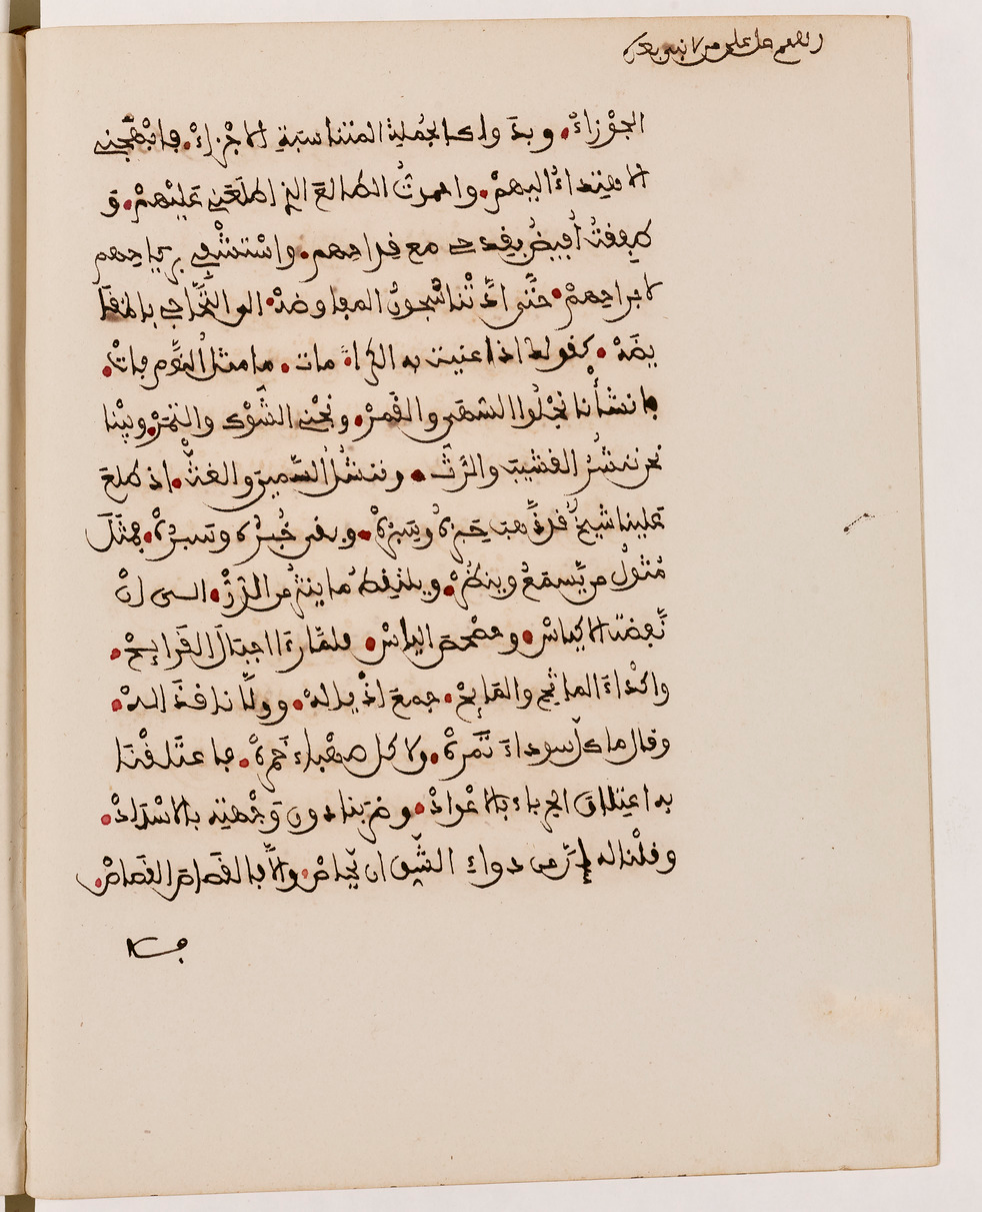 اللهم صل على من لا نبي بعده
الجَوْزاءْ. وبدَوا كالجُملةِ المتناسبَةِ الاجْزاءْ. فابْهَجَني
الاهتداءُ اليهمْ. واحمدتُ الطالعَ الذي اطلعَني عليْهمْ. وَ
طفِقتُ افيضُ بِقِدحي مع قداحهم. واسْتشْفي برياحهم
لا براحهمْ. حتَّى ادَّتْنا شجونُ المفاوضهْ. الى التَّحاجي بالمقا
يضَهْ. كقولك اذا عنيت به الكراماتْ. ما مثل النَّوم فاتْ.
فانشأْنا نجْلُوا السُّهى والقَمرْ. ونجْني الشَّوْك والثمَرْ. وبيْنا
نحن ننشُرُ القشيبَ والرَثّ. وننشُلُ السَّمينَ والغثّْ. اذ طلعَ
علينا شيخٌ قدْ ذهبَ حِبْرُهُ وسِبْرُهْ. وبقي خُبْرُه وسَبرُهْ. فمَثَلَ
مُثولُ من يَّسمَعُ وينظُرْ. ويلتقِطُ ما ينثرُ من الدُّررْ. الى انْ
نُّفِضتِ الاكياسْ. وحصْحصَ الياسْ. فلمَّا رءَا اجبَالَ القَرايحْ.
واكْداءَ الماتحِ والمَايحْ. جمعَ اذْيالهْ. وولَّانا قذَالهْ.
وقال ما كلّ سوداءَ تَمرهْ. ولا كل صهْباءَ خَمرهْ. فاعتَلقْنَا
به اعتِلاقَ الحرباءِ بالاعْوادْ. وضرَبنا دون وَجْهتِه بالاسْدَادْ.
وقلْنا له انَّ من دواءِ الشّقِ ان يُّحاصْ. والَّا فالقصَاصَ القصَاصْ.
فلا